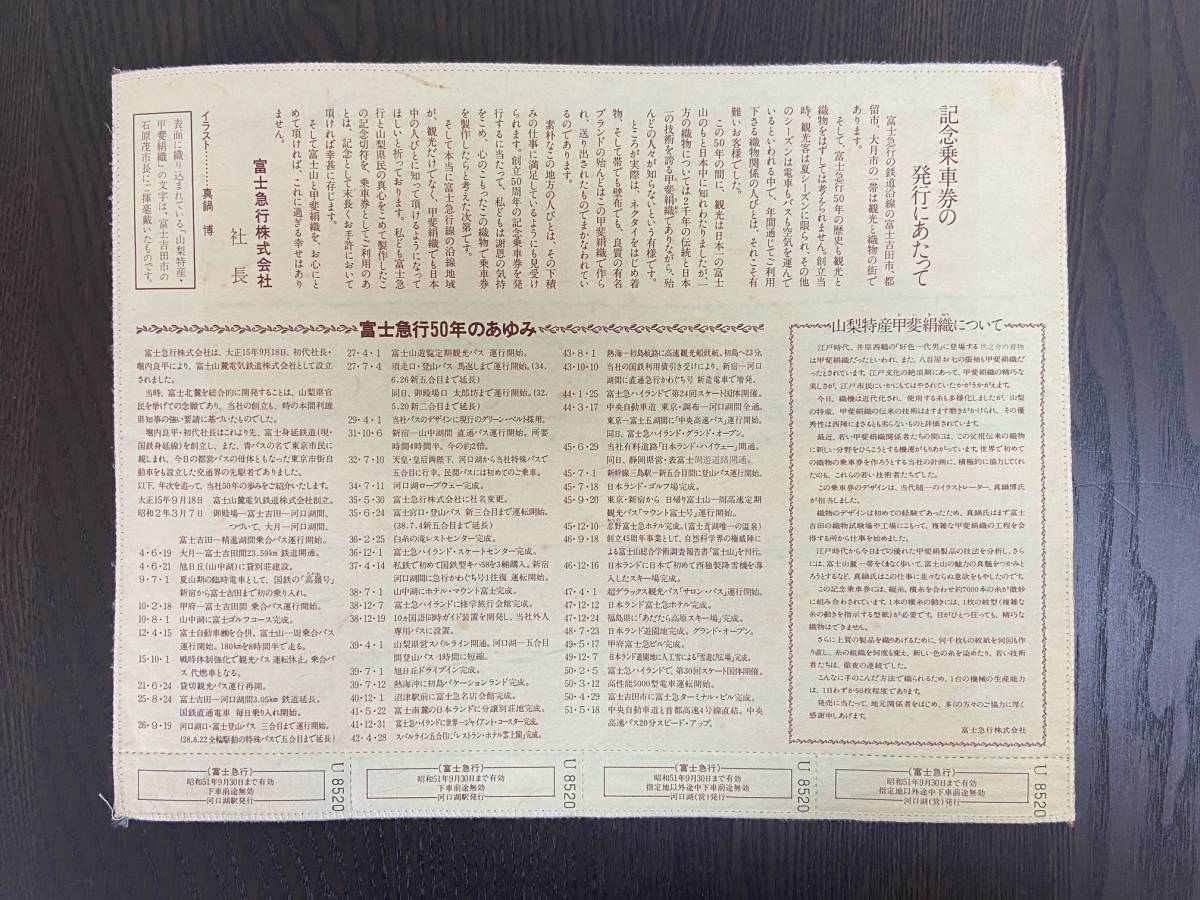 記念乗車券の
発行にあたって
富士急行の鉄道沿線の富士吉田市、都
留市、大月市の一帯は観光と織物の街で
あります。
そして、富士急行50年の歴史も観光と
織物をはずしては考えられません。創立当
時、観光客は夏シーズンに限られ、その他
のシーズンは電車もバスも空気を運んで
いるといわれる中で、年間通じてご利用
下さる織物関係の人びとは、それこそ有
難いお客様でした。
この50年の間に、観光は日本一の富士
山のもと日本中に知れわたりましたが、一
方の織物については2千年の伝統と日本
一の技術を誇る甲斐絹織でありながら、殆
んどの人々が知らないという有様です。
ところが実際は、ネクタイをはじめ着
物、そして帯でも壁布でも、良質の有名
ブランドの殆んどはこの甲斐絹織で作ら
れ、送り出されたものでまかなわれてい
るのであります。
素朴なこの地方の人びとは、その下積
みの仕事に満足しているようにも見受け
られます。創立50周年の記念乗車券を発
行するに当たって、私どもは謝恩の気持
をこめ、心のこもったこの織物で乗車券
を製作したらと考えた次第です。
そして本当に富士急行線の沿線地域
が、観光だけでなく、甲斐絹織でも日本
中の人びとに知って頂けるようになって
ほしいと祈っております。私ども富士急
行と山梨県民の真心をこめて製作したこ
の記念切符を、乗車券としてご利用のあ
とは、記念として末長くお手許において
頂ければ幸甚に存じます。
そして富士山と甲斐絹織を、お心にと
めて頂ければ、これに過ぎる幸せはあり
ません。
富士急行株式会社
社長
イラスト………真鍋 博
表面に織り込まれている「山梨特産・
甲斐絹織」の文字は、富士吉田市の
石原茂市長にご揮毫戴いたものです。
富士急行50年のあゆみ
富士急行株式会社は、大正15年9月18日、初代社長・
堀内良平により、富士山麓電気鉄道株式会社として設立
されました。
当時、富士北麓を総合的に開発することは、山梨県官
民を挙げての念願であり、当社の創立も、時の本間利雄
県知事の強い要請に基づいたものでした。
堀内良平・初代社長はこれより先、富士身延鉄道(現・
国鉄身延線)を創立し、また、青バスの名で東京市民に
親しまれ、今日の都営バスの母体ともなった東京市街自
動車も設立した交通界の先駆者でありました。
以下、年次を追って、当社50年の歩みをご紹介いたします。
大正15年9月18日 富士山麓電気鉄道株式会社創立。
昭和2年3月7日 御殿場―富士吉田―河口湖間、
つづいて、大月―河口湖間、
富士吉田―精進湖間乗合バス運行開始。
4・6・19 大月―富士吉田間23.59km 鉄道開通。
4・6・21 旭日丘(山中湖)に貸別荘建設。
9・7・1 夏山期の臨時電車として、国鉄の「高嶺号」
新宿から富士吉田まで初の乗り入れ。
10・2・18 甲府―富士吉田間 乗合バス運行開始。
10・8・1 山中湖に富士ゴルフコース完成。
12・4・15 富士自動車㈱を合併。富士山一周乗合バス
運行開始。180kmを8時間半で走る。
15・10・1 戦時体制強化で観光バス 運転休止。乗合バ
ス 代燃車となる。
21・6・24 貸切観光バス運行再開。
25・8・24 富士吉田―河口湖間3.05km 鉄道延長。
国鉄直通電車 毎日乗り入れ開始。
26・9・19 河口湖口・富士登山バス 三合目まで運行開始。
(28.8.22全輪駆動の特殊バスで五合目まで延長)
27・4・1 富士山遊覧定期観光バス 運行開始。
27・7・4 須走口・登山バス 馬返しまで運行開始。(34.
6.26新五合目まで延長)
同日、御殿場口 太郎坊まで運行開始。(32.
5.20新二合目まで延長)
29・4・1 当社バスのデザインに現行のグリーン・ベルト採用。
31・10・6 新宿―山中湖間 直通バス運行開始。所要
時間4時間半。今の約2倍。
32・7・10 天皇・皇后両陛下、河口湖から当社特殊バスで
五合目に行幸。民間バスには初めてのご乗車。
34・7・11 河口湖ロープウェー完成。
35・5・30 富士急行株式会社に社名変更。
35・6・24 富士宮口・登山バス 新三合目まで運転開始。
(38.7.4新五合目まで延長)
36・2・25 白糸の滝レストセンター完成。
36・12・1 富士急ハイランド・スケートセンター完成。
37・4・14 私鉄で初めて国鉄型キハ58を3輛購入。新宿
河口湖間に急行かわぐち号1往復 運転開始。
38・7・1 山中湖にホテル・マウント富士完成。
38・12・7 富士急ハイランドに修学旅行会館完成。
38・12・19 10ヵ国語同時ガイド装置を開発し、当社外人
専用バスに設置。
39・4・1 山梨県営スバルライン開通。河口湖―五合目
間登山バス1時間に短縮。
39・7・1 旭日丘ドライブイン完成。
39・7・12 熱海沖に初島バケーションランド完成。
40・12・1 沼津駅前に富士急名店会館完成。
41・5・22 富士南麓の日本ランドに分譲別荘地完成。
41・12・31 富士急ハイランドに世界一ジャイアント・コースター完成。
42・4・28 スバルライン五合目に「レストラン・ホテル雲上閣」完成。
43・8・1 熱海―初島航路に高速観光船就航。初島へ23分。
43・10・10 当社の国鉄利用債引き受けにより、新宿―河口
湖間に直通急行かわぐち号 新造電車で増発。
44・1・25 富士急ハイランドで第24回スケート国体開催。
44・3・17 中央自動車道 東京・調布―河口湖間全通。
東京―富士五湖間に「中央高速バス」運行開始。
同日、富士急ハイランド・グランド・オープン。
45・6・29 当社有料道路「日本ランド・ハイウェー」開通。
同日、静岡県営・表富士周遊道路開通。
45・7・1 新幹線三島駅―新五合目間に登山バス運行開始。
45・7・18 日本ランド・ゴルフ場完成。
45・9・20 東京・新宿から 日帰り富士山一周高速定期
観光バス「マウント富士号」運行開始。
45・12・10 忍野富士急ホテル完成。(富士五湖唯一の温泉)
46・9・18 創立45周年事業として、自然科学界の権威陣に
よる富士山総合学術調査報告書「富士山」を刊行。
46・12・16 日本ランドに日本で初めて西独製降雪機を導
入したスキー場完成。
47・4・1 超デラックス観光バス「サロン・バス」運行開始。
47・12・12 日本ランド富士急ホテル完成。
47・12・24 福島県に「あだたら高原スキー場」完成。
48・7・23 日本ランド遊園地完成。グランド・オープン。
49・5・17 甲府富士急ビル完成。
49・12・7 日本ランド遊園地に人工雪による「雪遊び広場」完成。
50・2・5 富士急ハイランドで 第30回スケート国体開催。
50・3・12 高性能5000型電車運転開始。
50・4・29 富士吉田市に富士急ターミナル・ビル完成。
51・5・18 中央自動車道と首都高速4号線直結。中央
高速バス20分スピード・アップ。
山梨特産甲斐絹織について
江戸時代、井原西鶴の「好色一代男」に登場する世之介の着物
は甲斐絹織だったといわれ、また、八百屋お七の振袖も甲斐絹織だ
ったとされています。江戸文化の絶頂期にあって、甲斐絹織の精巧な
美しさが、江戸市民にいかにもてはやされていたかがうかがえます。
今日、織機は近代化され、使用する糸も多様化しましたが、山梨
の特産、甲斐絹織の伝来の技術はますます磨きがかけられ、その優
秀性は西陣にまさるとも劣らないものと評価されています。
最近、若い甲斐絹織関係者たちの間には、この父祖伝来の織物
に新しい分野をひらこうとする機運がもりあがっています。世界で初め
ての織物の乗車券を作ろうとする当社の計画に、積極的に協力してくれ
たのも、これらの若い技術者たちでした。
この乗車券のデザインは、当代随一のイラストレーター、真鍋博氏
が担当しました。
織物のデザインは初めての経験であったため、真鍋氏はまず富士
吉田の織物試験場や工場にこもって、複雑な甲斐絹織の工程を会
得する所から仕事を始めました。
江戸時代から今日までの優れた甲斐絹製品の技法を分析し、さら
には、富士山麓一帯をくまなく歩いて、富士山の魅力の真髄をつかみと
ろうとするなど、真鍋氏はこの仕事に並々ならぬ意欲をもやしたのです。
この記念乗車券には、縦糸、横糸を合わせ約7000本の糸が微妙
に組み合わされています。1本の横糸の動きには、1枚の紋型(複雑な
糸の動きを指示する型紙)が必要です。目がひとつ狂っても、精巧な
織物はできません。
さらに上質の製品を織りあげるために、何千枚もの紋紙を何回も作
り直し、糸の組織を何度も変え、新しい色の糸を染めたり、若い技術
者たちは、徹夜の連続でした。
こんなに手のこんだ方法で織られるため、1台の機械の生産能力
は、1日わずか50枚程度であります。
発売に当たって、地元関係者をはじめ、多くの方々のご協力に厚く
感謝申しあげます。
富士急行株式会社
(富士急行)
昭和51年9月30日まで有効
下車前途無効
河口湖駅発行
U 8520
(富士急行)
昭和51年9月30日まで有効
下車前途無効
河口湖駅発行
(富士急行)
昭和51年9月30日まで有効
指定地以外途中下車前途無効
河口湖(営)発行
U 8520
(富士急行)
昭和51年9月30日まで有効
指定地以外途中下車前途無効
河口湖(営)発行
U 8520